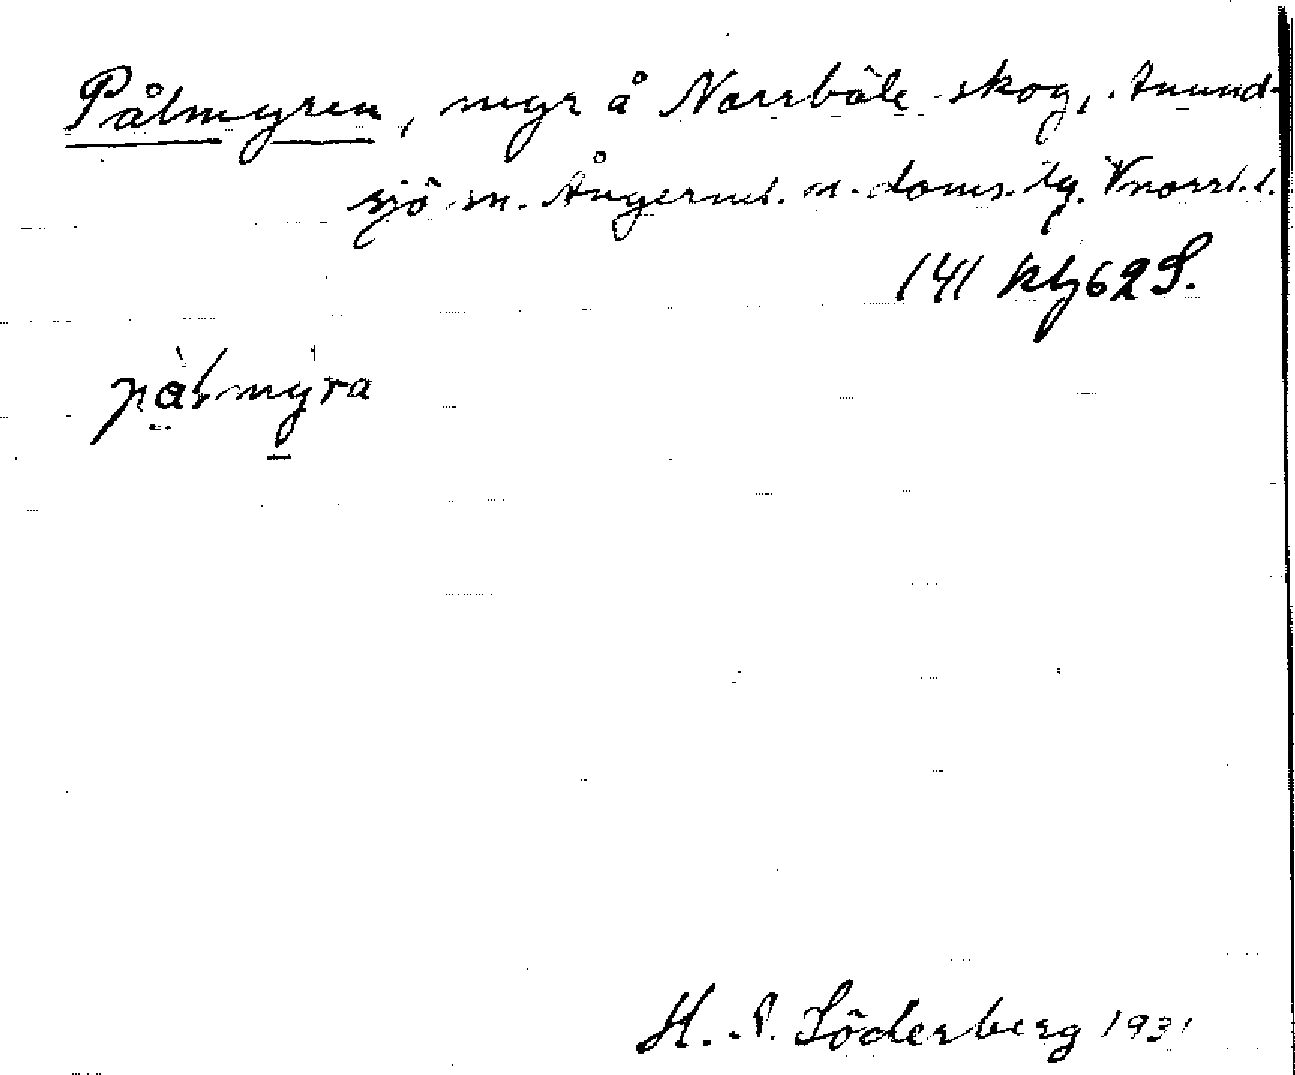 Pålmyren, myr å Norrböle skog, Anund-
sjö sn. Ångerml. n. doms. tg. Vnorrl. l.
141 kbj 62 S.
pålmyra
H. P. Söderberg 1931